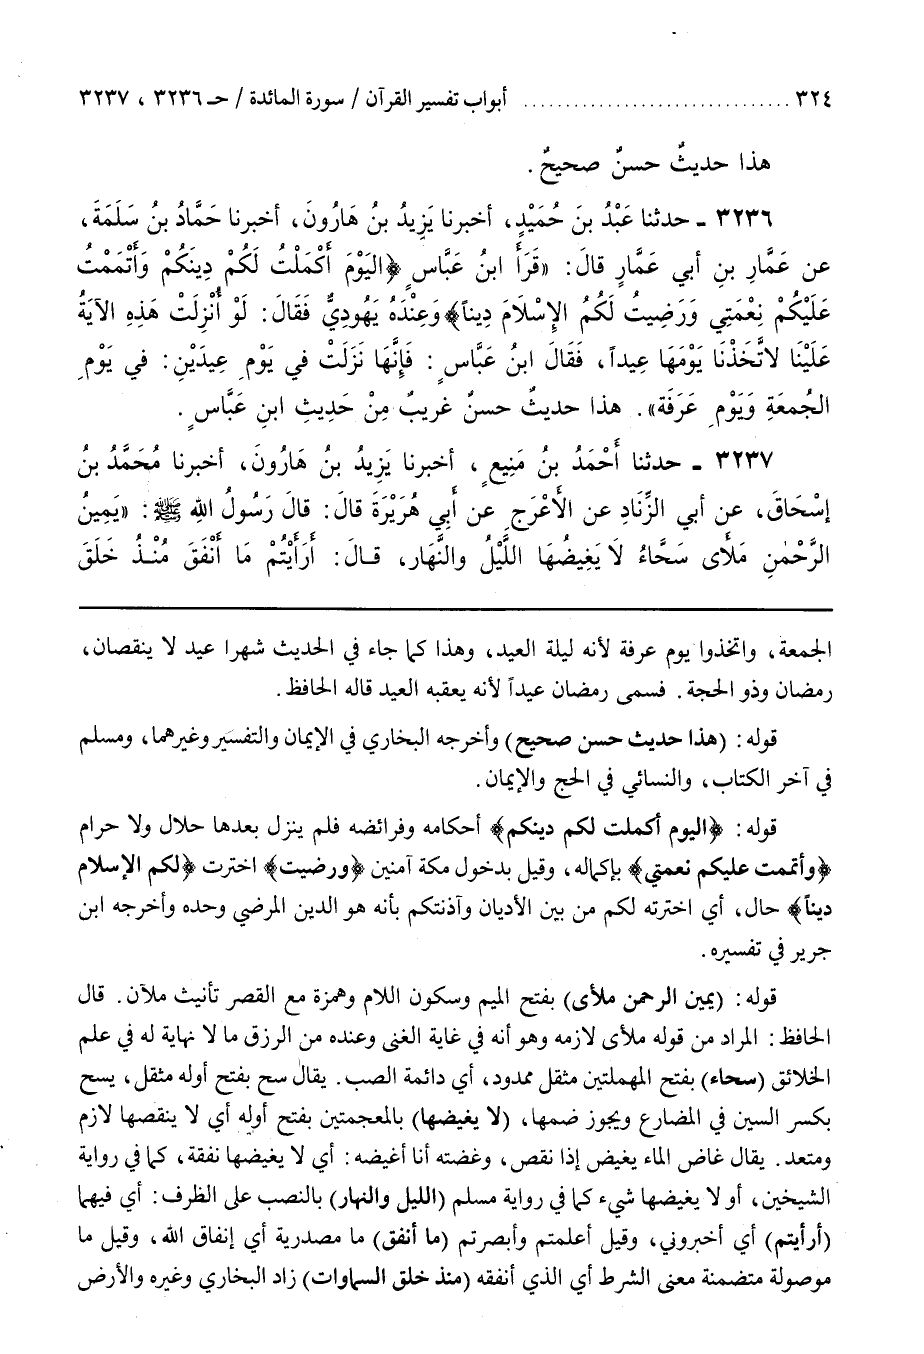 ٣٢٤ .............................. أبواب تفسير القرآن / سورة المائدة / حـ ٣٢٣٦ ، ٣٢٣٧
هذا حديثٌ حسنٌ صحيحٌ .
٣٢٣٦ ـ حدثنا عَبْدُ بنَ حُمَيْدٍ، أخبرنا يَزِيدُ بنُ هَارُونَ، أخبرنا حَمَّادُ بنُ سَلَمَةَ،
عن عَمَّارِ بنِ أبي عَمَّارٍ قالَ: «قَرَأَ ابنُ عَبَّاسٍ ﴿اليَوْمَ أَكْمَلْتُ لَكُمْ دِينَكُمْ وَأَتْمَمْتُ
عَلَيْكُمْ نِعْمَتِي وَرَضِيتُ لَكُمُ الإِسْلَامَ دِيناً﴾ وَعِنْدَهُ يَهُودِيٌّ فَقَالَ: لَوْ أُنْزِلَتْ هَذِهِ الآيَةُ
عَلَيْنَا لاتَّخَذْنَا يَوْمَهَا عِيداً، فَقَالَ ابنُ عَبَّاسٍ: فَإِنَّهَا نَزَلَتْ في يَوْمِ عِيدَيْنِ: في يَوْمِ
الجُمعَةِ وَيَوْمِ عَرَفَةَ». هذا حديثٌ حسنٌ غريبٌ مِنْ حَدِيثِ ابنِ عَبَّاسٍ .
٣٢٣٧ ـ حدثنا أَحْمَدُ بنُ مَنِيعٍ ، أخبرنا يَزِيدُ بنُ هَارُونَ، أخبرنا مُحَمَّدُ بنُ
إسْحَاقَ، عن أبي الزِّنَادِ عن الأَعْرَجِ عن أَبي هُرَيْرَةَ قالَ: قالَ رَسُولُ اللهِ ﷺ: «يَمِينُ
الرَّحْمٰنِ مَلأَى سَحَّاءُ لاَ يَغِيضُهَا اللَّيْلُ والنَّهَار، قـالَ: أَرَأَيْتُمْ مَا أَنْفَقَ مُنْـذُ خَلَقَ
الجمعة، واتخذوا يوم عرفة لأنه ليلة العيد، وهذا كما جاء في الحديث شهرا عيد لا ينقصان،
رمضان وذو الحجة. فسمى رمضان عيداً لأنه يعقبه العيد قاله الحافظ.
قوله: (هذا حديث حسن صحيح) وأخرجه البخاري في الإيمان والتفسير وغيرهما، ومسلم
في آخر الكتاب، والنسائي في الحج والإيمان.
قوله: ﴿اليوم أكملت لكم دينكم﴾ أحكامه وفرائضه فلم ينزل بعدها حلال ولا حرام
﴿وأتممت عليكم نعمتي﴾ بإكماله، وقيل بدخول مكة آمنين ﴿ورضيت﴾ اخترت ﴿لكم الإسلام
ديناً﴾ حال، أي اخترته لكم من بين الأديان وآذنتكم بأنه هو الدين المرضي وحده وأخرجه ابن
جرير في تفسيره.
قوله: (يمين الرحمن ملأى) بفتح الميم وسكون اللام وهمزة مع القصر تأنيث ملآن. قال
الحافظ: المراد من قوله ملأى لازمه وهو أنه في غاية الغنى وعنده من الرزق ما لا نهاية له في علم
الخلائق (سحاء) بفتح المهملتين مثقل ممدود، أي دائمة الصب. يقال سح بفتح أوله مثقل، يسح
بكسر السين في المضارع ويجوز ضمها، (لا يغيضها) بالمعجمتين بفتح أوله أي لا ينقصها لازم
ومتعد. يقال غاض الماء يغيض إذا نقص، وغضته أنا أغيضه: أي لا يغيضها نفقة، كما في رواية
الشيخين، أو لا يغيضها شيء كما في رواية مسلم (الليل والنهار) بالنصب على الظرف: أي فيهما
(أرأيتم) أي أخبروني، وقيل أعلمتم وأبصرتم (ما أنفق) ما مصدرية أي إنفاق الله، وقيل ما
موصولة متضمنة معنى الشرط أي الذي أنفقه (منذ خلق السماوات) زاد البخاري وغيره والأرض